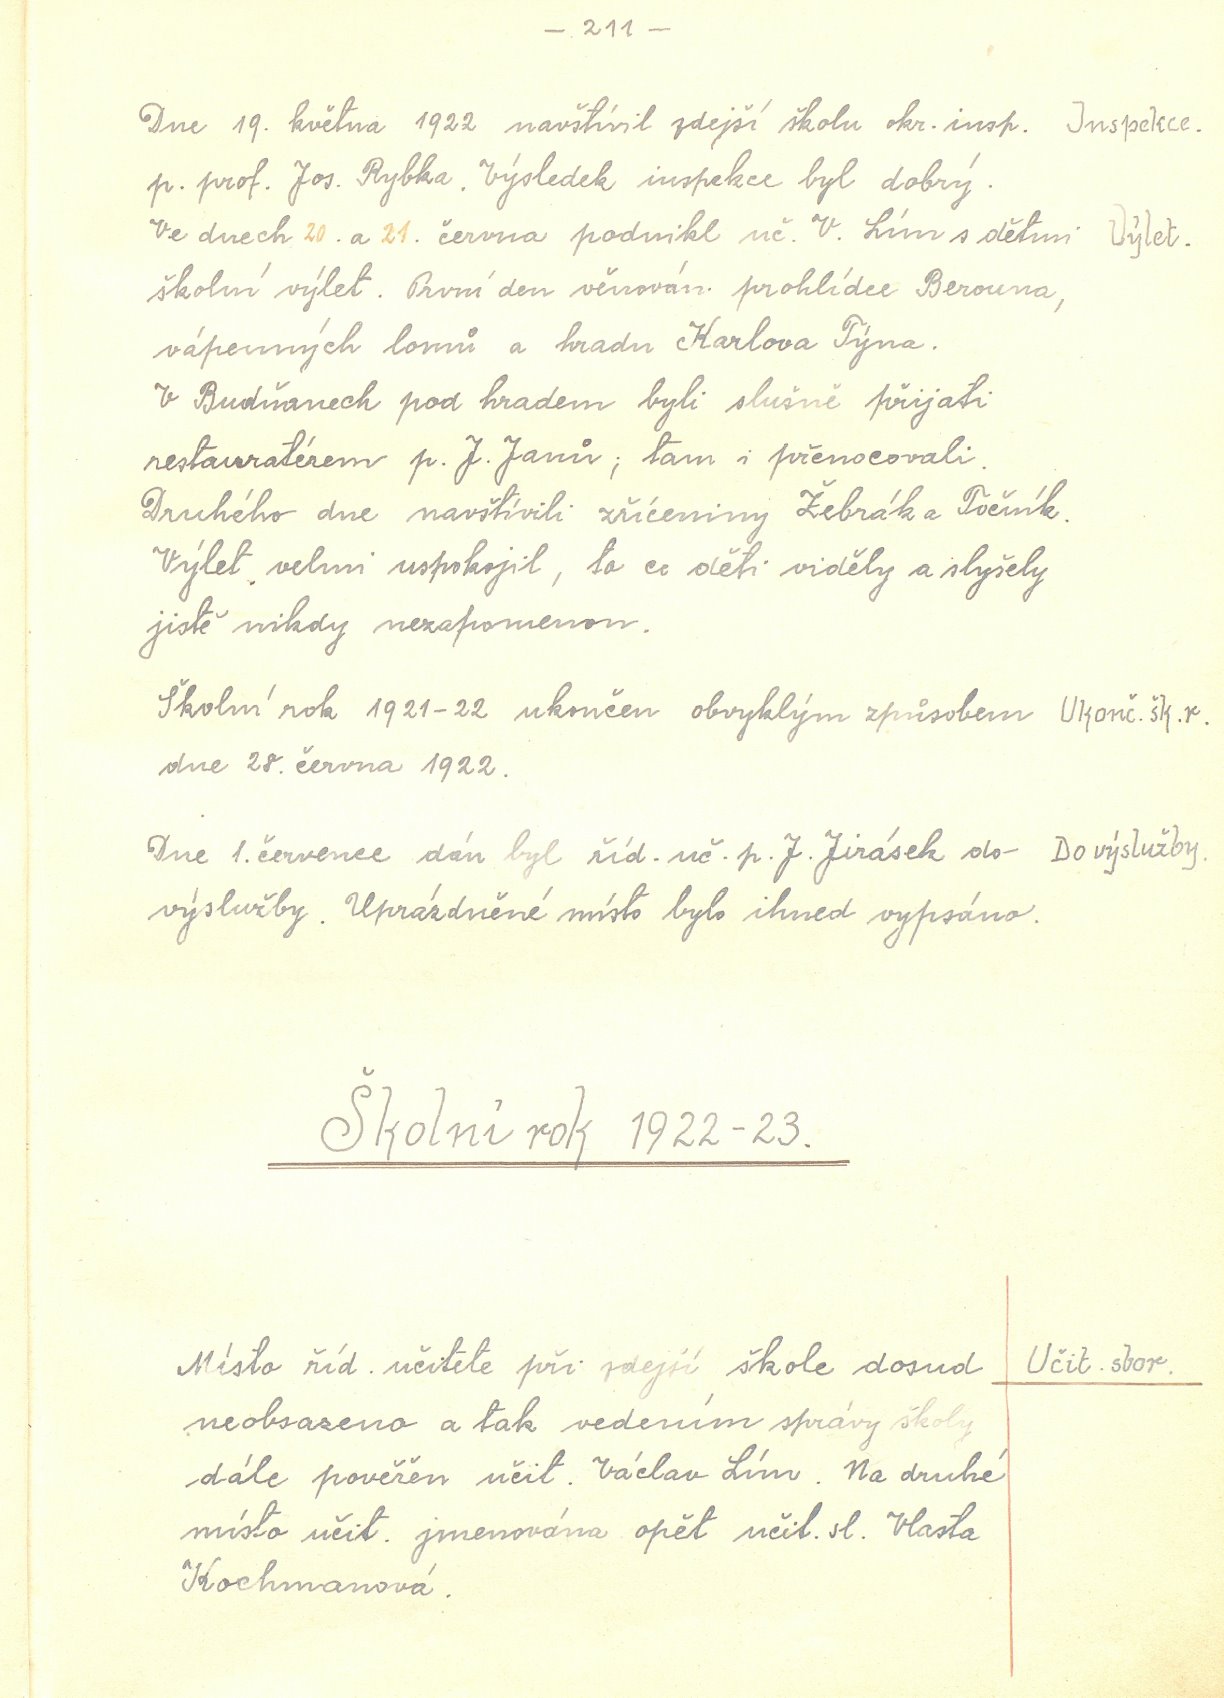 – 211 –
Dne 19. května 1922 navštívil zdejší školu okr. insp. Inspekce.
p. prof. Jos. Rybka. Výsledek inspekce byl dobrý.
Ve dnech 20. a 21. června podnikl uč. V. Lím s dětmi Výlet.
školní výlet. První den věnován prohlídce Berouna,
vápenných lomů a hradu Karlova Týna.
V Budňanech pod hradem byli slušně přijati
restauratérem p. J. Janů; tam i přenocovali.
Druhého dne navštívili zříceniny Žebrák a Točník.
Výlet velmi uspokojil, to co děti viděly a slyšely
jistě nikdy nezapomenou.
Školní rok 1921-22 ukončen obvyklým způsobem Ukonč. šk. r.
dne 28. června 1922.
Dne 1. července dán byl říd. uč. p. J. Jirásek do- Do výslužby.
výslužby. Uprázdněné místo bylo ihned vypsáno.
Školní rok 1922-23.
Místo říd. učitele při zdejší škole dosud Učit. sbor.
neobsazeno a tak vedením správy školy
dále pověřen učit. Václav Lím. Na druhé
místo učit. jmenována opět učit. sl. Vlasta
Kochmanová.